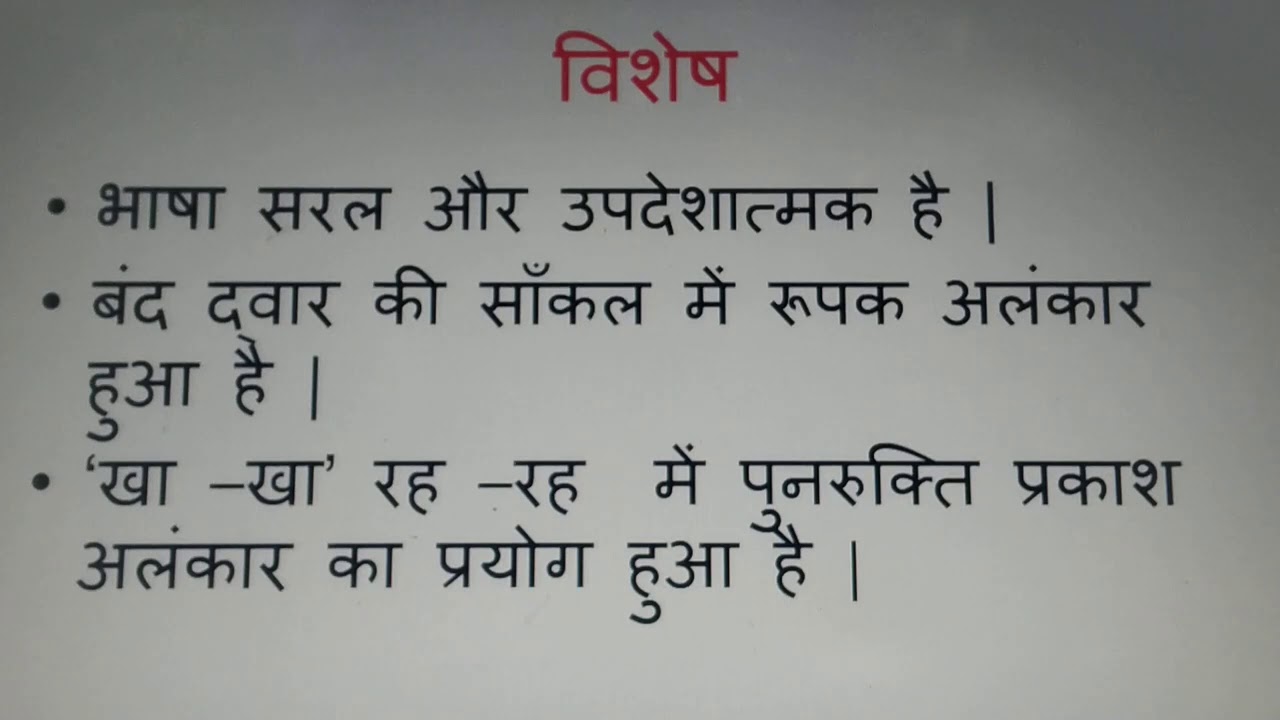 विशेष
• भाषा सरल और उपदेशात्मक है |
• बंद द्वार की साँकल में रूपक अलंकार
हुआ है |
• ‘खा –खा’ रह –रह में पुनरुक्ति प्रकाश
अलंकार का प्रयोग हुआ है |